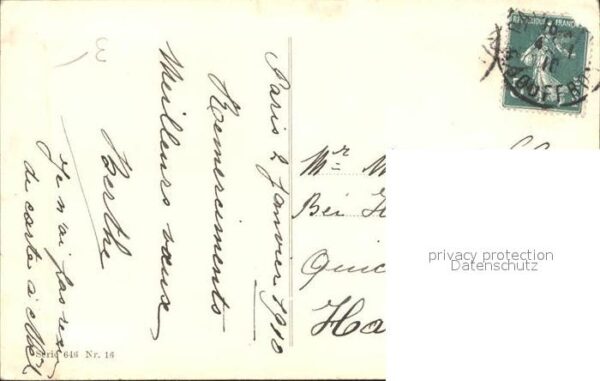 Paris 2 Janvier 1910
Remerciments
Meilleurs vœux
Berthe
Je n'ai pas reçu
de carte à Noël
3
Serie 646 Nr. 16
REPUBLIQUE FRANC
JOUFFR
Mr M
Bei H
Quic
Ha
privacy protection
Datenschutz